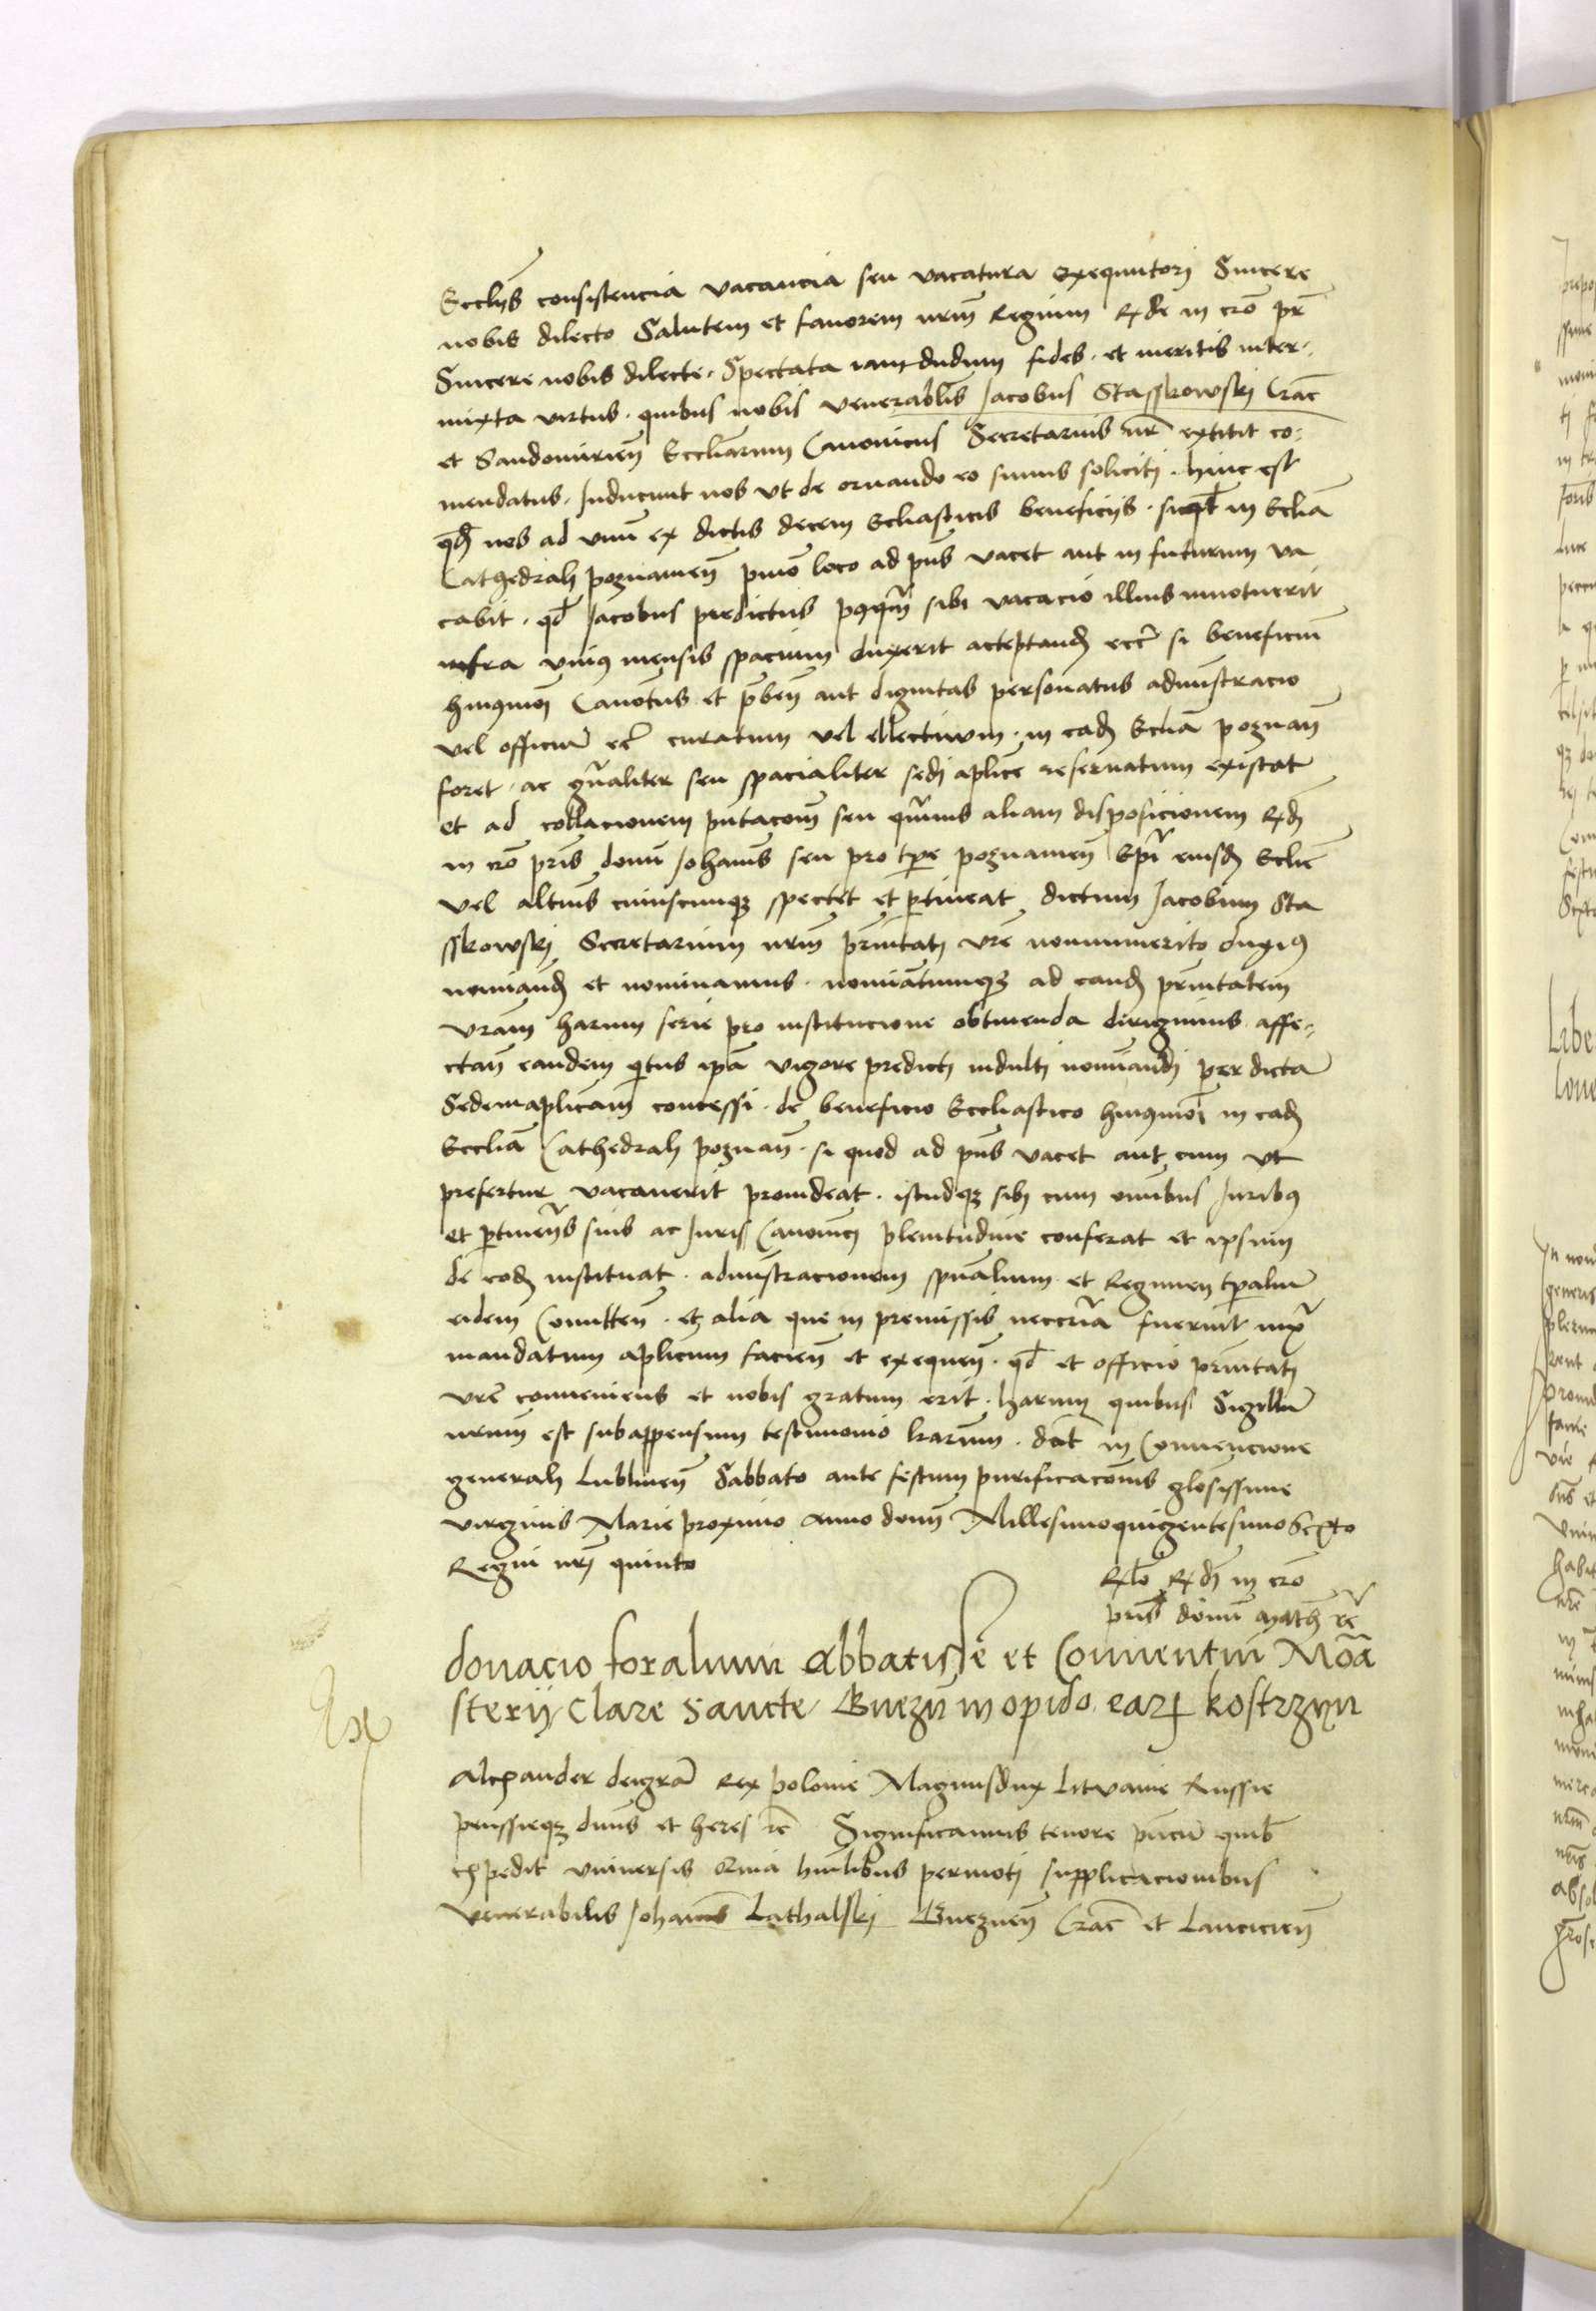 Eccliis consistencia vacancia seu vacatura exequutori Sincere
nobis dilecto Salutem et favorem nrm̄ Regium Rde in cro pr̄
Sincere nobis dilecte. Spectata iam dudum fides. et meritis inter-
mixta virtus. quibus nobis venerabil̄s Jacobus Stasskowski Crac̄
et Sandomirien̄ Eccliarum Canonicus Secretarius nr̄ extitit co-
mendatus. Inducunt nos vt de ornando eo simus soliciti. hinc est
qd̄ nos ad vnū ex dictis decem Ecliasticis beneficiis. siqd̄ in Eclia
Cathedrali poznanien̄ pmo loco ad pn̄s vacet aut in futurum va
cabit. qd̄ Jacobus predictus psq̄m sibi vacacio illius innotuerit
infra vnius mensis spacium duxerit acceptand̄ ecc̄ si beneficiū
hmōi Canōtus et pben̄ aut dignitas personatus administracio
vel officiū ec̄ curatum vel ellectivum. in ead̄ Eclia poznan̄
foret. ac gn̄aliter seu spacialiter sedi aplice reservatum existat
et ad collacionem pn̄tacōm seu quīvis aliam disposicionem Rd̄i
in cro pris domī Johan̄is seu pro tpe poznanien̄ Epī eiusd̄ Eclie
vel alt̄ius cuiuscumqz spectet et ptineat dictum Jacobum Sta
sskowski Secretarium nrm̄ pr̄nitati vrē nonimmerito duxim9
nominand̄ et nominamus. nominatumqz ad eand̄ pr̄nitatem
vram̄ harum serie pro institucione obtinenda dirigimus affe-
ctan̄ eandem q̄tus ip̄a vigore predicti indulti nominandi per dicta
Sedemaplicam concessi. de beneficio Eccliastico hmōi in ead̄
Ecclia Cathedrali poznan̄. si quod ad pn̄s vacet aut cum vt
prefertur vacaverit provideat. istudqz sibi cum omibus Iuribus
et ptinen̄s suis ac Iuris Canonici plenitudine conferat et ipsum
de eod̄ instituat. administracionem spūalium et Regimen tp̄aliū
eidem Comitten̄. et alia que in premissis neccria fuerint iux̄
mandatum aplicum facien̄ et exequen̄. qd̄ et officio pr̄nitati
vrē conveniens et nobis gratum erit. harum quibus Sigillū
nrum est subappensum testimonio lrarum. dat̄ in Convencione
generali lublinen̄ Sabbato ante festum purificacōnis glosissime
virginis Marie proximo Anno domī Millesimoquigentesimo Sexto
Regni nrī quinto
Rlo Rd̄i in cro
pris domī Math̄ rc̄
donacio foralium Abbatisse et Conventui Mōa
sterii Clare Sancte Gnezn̄ in opido earz kostrzyn
Ex
Alexander deigra Rex polonie Magnusdux Litvanie Russie
prussieqz dn̄us et heres rc̄ Significamus tenore pn̄ciū quib̄
expedit universis Quia humlibus permoti supplicacionibus
venerabilis Johan̄is Lathalski Gneznen̄ Crac̄ et Lancicien̄